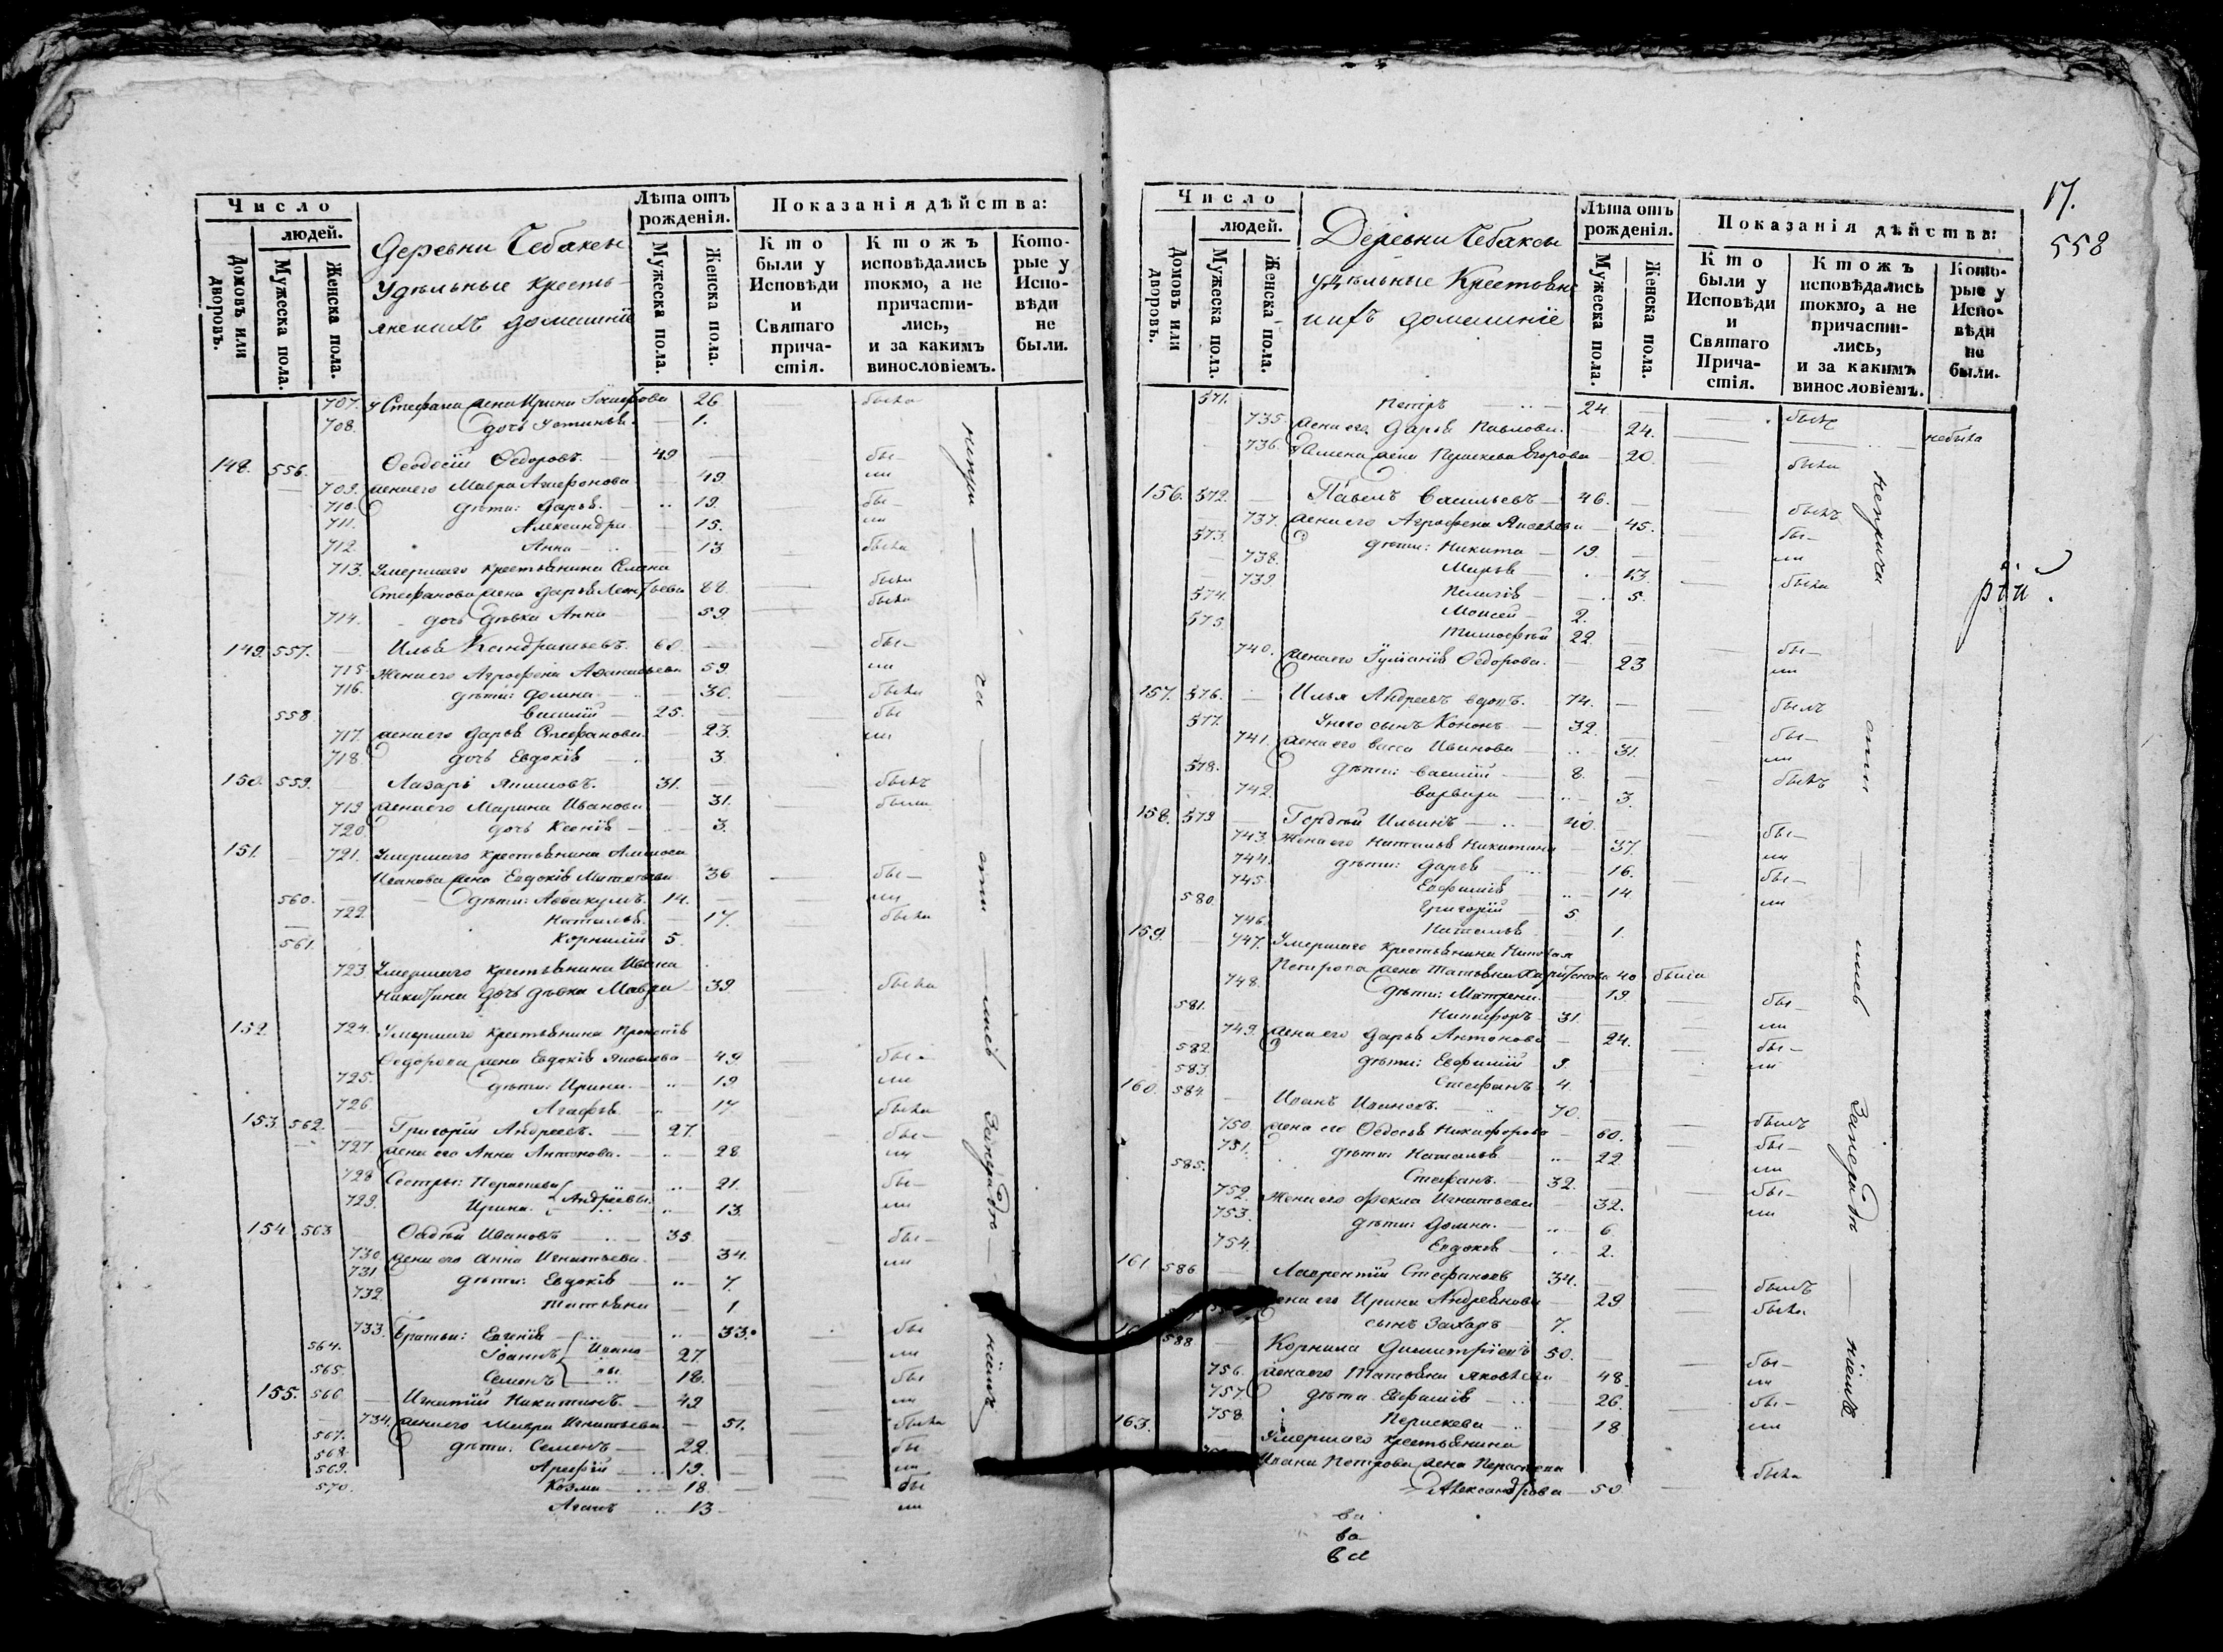 Число
людей.
Домовъ или дворовъ.
Мужеска пола.
Женска пола.
Деревни Чебаксы
Удѣльные кресть-
яне и ихъ домашніе
Лѣта отъ рожденія.
Мужеска пола.
Женска пола.
Показанія дѣйства:
Кто были у Исповѣди и Святаго причастія.
Ктожъ исповѣдались токмо, а не причастились, и за какимъ винословіемъ.
Которые у Исповѣди не были.
707. У Стефана жена Ирина 26 была
708. дочь Устинья. — 1.
148. 556. — Ѳеодосій Ѳедоровъ. — 49 — бы-
709. жена его Мавра Агафонова — 49. ли
710. дѣти: Дарья. — 19. бы-
711. Александра — 15. ли
712. Анна — 13 была
713. Умершаго крестьянина
Стефанова жена Дарья Леонтьева 88. была
714. дочь дѣвка Анна — 59 была
149. 557. — Илья Кондратьевъ. 60. — бы-
715. Жена его Агрофена Аѳанасьева 59 ли
716. дѣти: Домна — 30. была
558 Василій — 25. — бы
717. жена его Дарья Стефанова — 23. ли
718. дочь Евдокія — 3.
150. 559. — Лазарь Якимовъ. 31. — былъ
719 жена его Марина Иванова — 31. была
720 дочь Ксенія — 3.
151. 721. Умершаго крестьянина
Иванова жена Евдокія 36 бы-
560. — дѣти: Аввакумъ. 14. — ли
722. Наталья. — 17. была
561. Корнилій 5.
723 Умершаго крестьянина Ивана
Никитина дочь дѣвка Мавра — 39. была
152. 724. Умершаго крестьянина Прокопія
Ѳедорова жена Евдокія Яковлева — 49 бы-
725. дѣти: Ирина. — 19 ли
726 Агафья — 17 была
153. 562. — Григорій Андреевъ. — 27. бы-
727 жена его Анна Антонова. — 28 ли
728 Сестры: Параскева — 21. бы-
729. Ирина. Андреевы. 13. ли
154. 563 Ѳадѣй Ивановъ — 35 бы-
730. жена его Анна Игнатьева. 34. ли
731 дѣти: Евдокія — 7.
732. Татьяна — 1
733. Братьи: Евгенія — 33. бы
564. Іоаннъ Ивано- 27. ли
565. Семенъ вы. 18. бы
155. 566 — Игнатій Никитинъ. — 49 ли
734. жена его Мавра Игнатьева. — 51. была
567. дѣти: Семенъ — 22. бы
568. Арефій — 19. ли
569. Козма — 18 — бы
570. 13 — ли
Число
людей.
Домовъ или дворовъ.
Мужеска пола.
Женска пола.
Деревни Чебаксы
удѣльные Крестьяне
и ихъ домашніе
Лѣта отъ рожденія.
Мужеска пола.
Женска пола.
Показанія дѣйства:
Кто были у Исповѣди и Святаго Причастія.
Ктожъ исповѣдались токмо, а не причастились, и за какимъ винословіемъ.
Которые у Исповѣди не были.
17.
558
571. Петръ — 24. — былъ
735. жена его Дарья Павлова. — 24. небыла
736. жена Параскева Егорова — 20. была
156. 572. — Павелъ Васильевъ — 46. — былъ
737. жена его Агрофена Яковлева — 45. бы-
573. дѣти: Никита — 19. — ли
738. Марья — 13. была
739. Пелагія — 5.
574. Моисей — 2.
575. Тимофѣй 22. — бы-
740. жена его Іуліанія Ѳедорова. 23 ли
157. 576. — Илья Андреевъ вдовъ. 74. — былъ
577. У него сынъ Кононъ — 32. — бы-
741. жена его Васса Иванова — 31. ли
578. дѣти: Василій — 8. — былъ
742. Варвара — 3.
158. 579 — Гордѣй Ильинъ — 40. бы-
743. Жена его Наталья Никитина 37. ли
744. дѣти: Дарья — 16. бы-
745. Евфимія — 14. ли
580. Григорій — 5
746. Наталья — 1.
159. 747. Умершаго крестьянина
Петрова жена Татьяна Харитонова 40 была
748. дѣти: Матрена. — 19. бы-
581. Никифоръ 31. — ли
749. жена его Дарья Антонова — 24. бы-
582. дѣти: Евфимій — 9. ли
583. Стефанъ 4.
160. 584. — Иванъ Ивановъ. — 70. былъ
750. жена его Ѳедосья Никифорова — 60. бы-
751. дѣти: Наталья — 22 ли
585. Стефанъ. — 32. — бы-
752. Жена его Ѳекла Игнатьева 32. ли
753. дѣти: Домна. — 6
754. Евдокія — 2.
161 586 — Лаврентій Стефановъ 34. — былъ
жена его Ирина Андреянова — 29 была
сынъ Захаръ — 7.
588. — Корнила Димитріевъ 50. — бы-
756. жена его Татьяна Яковлева 48. ли
757. дѣти Евфимія — 26. бы-
758. Параскева — 18 ли
163. Умершаго крестьянина
Ивана Петрова жена Параскева
Александрова — 50. была